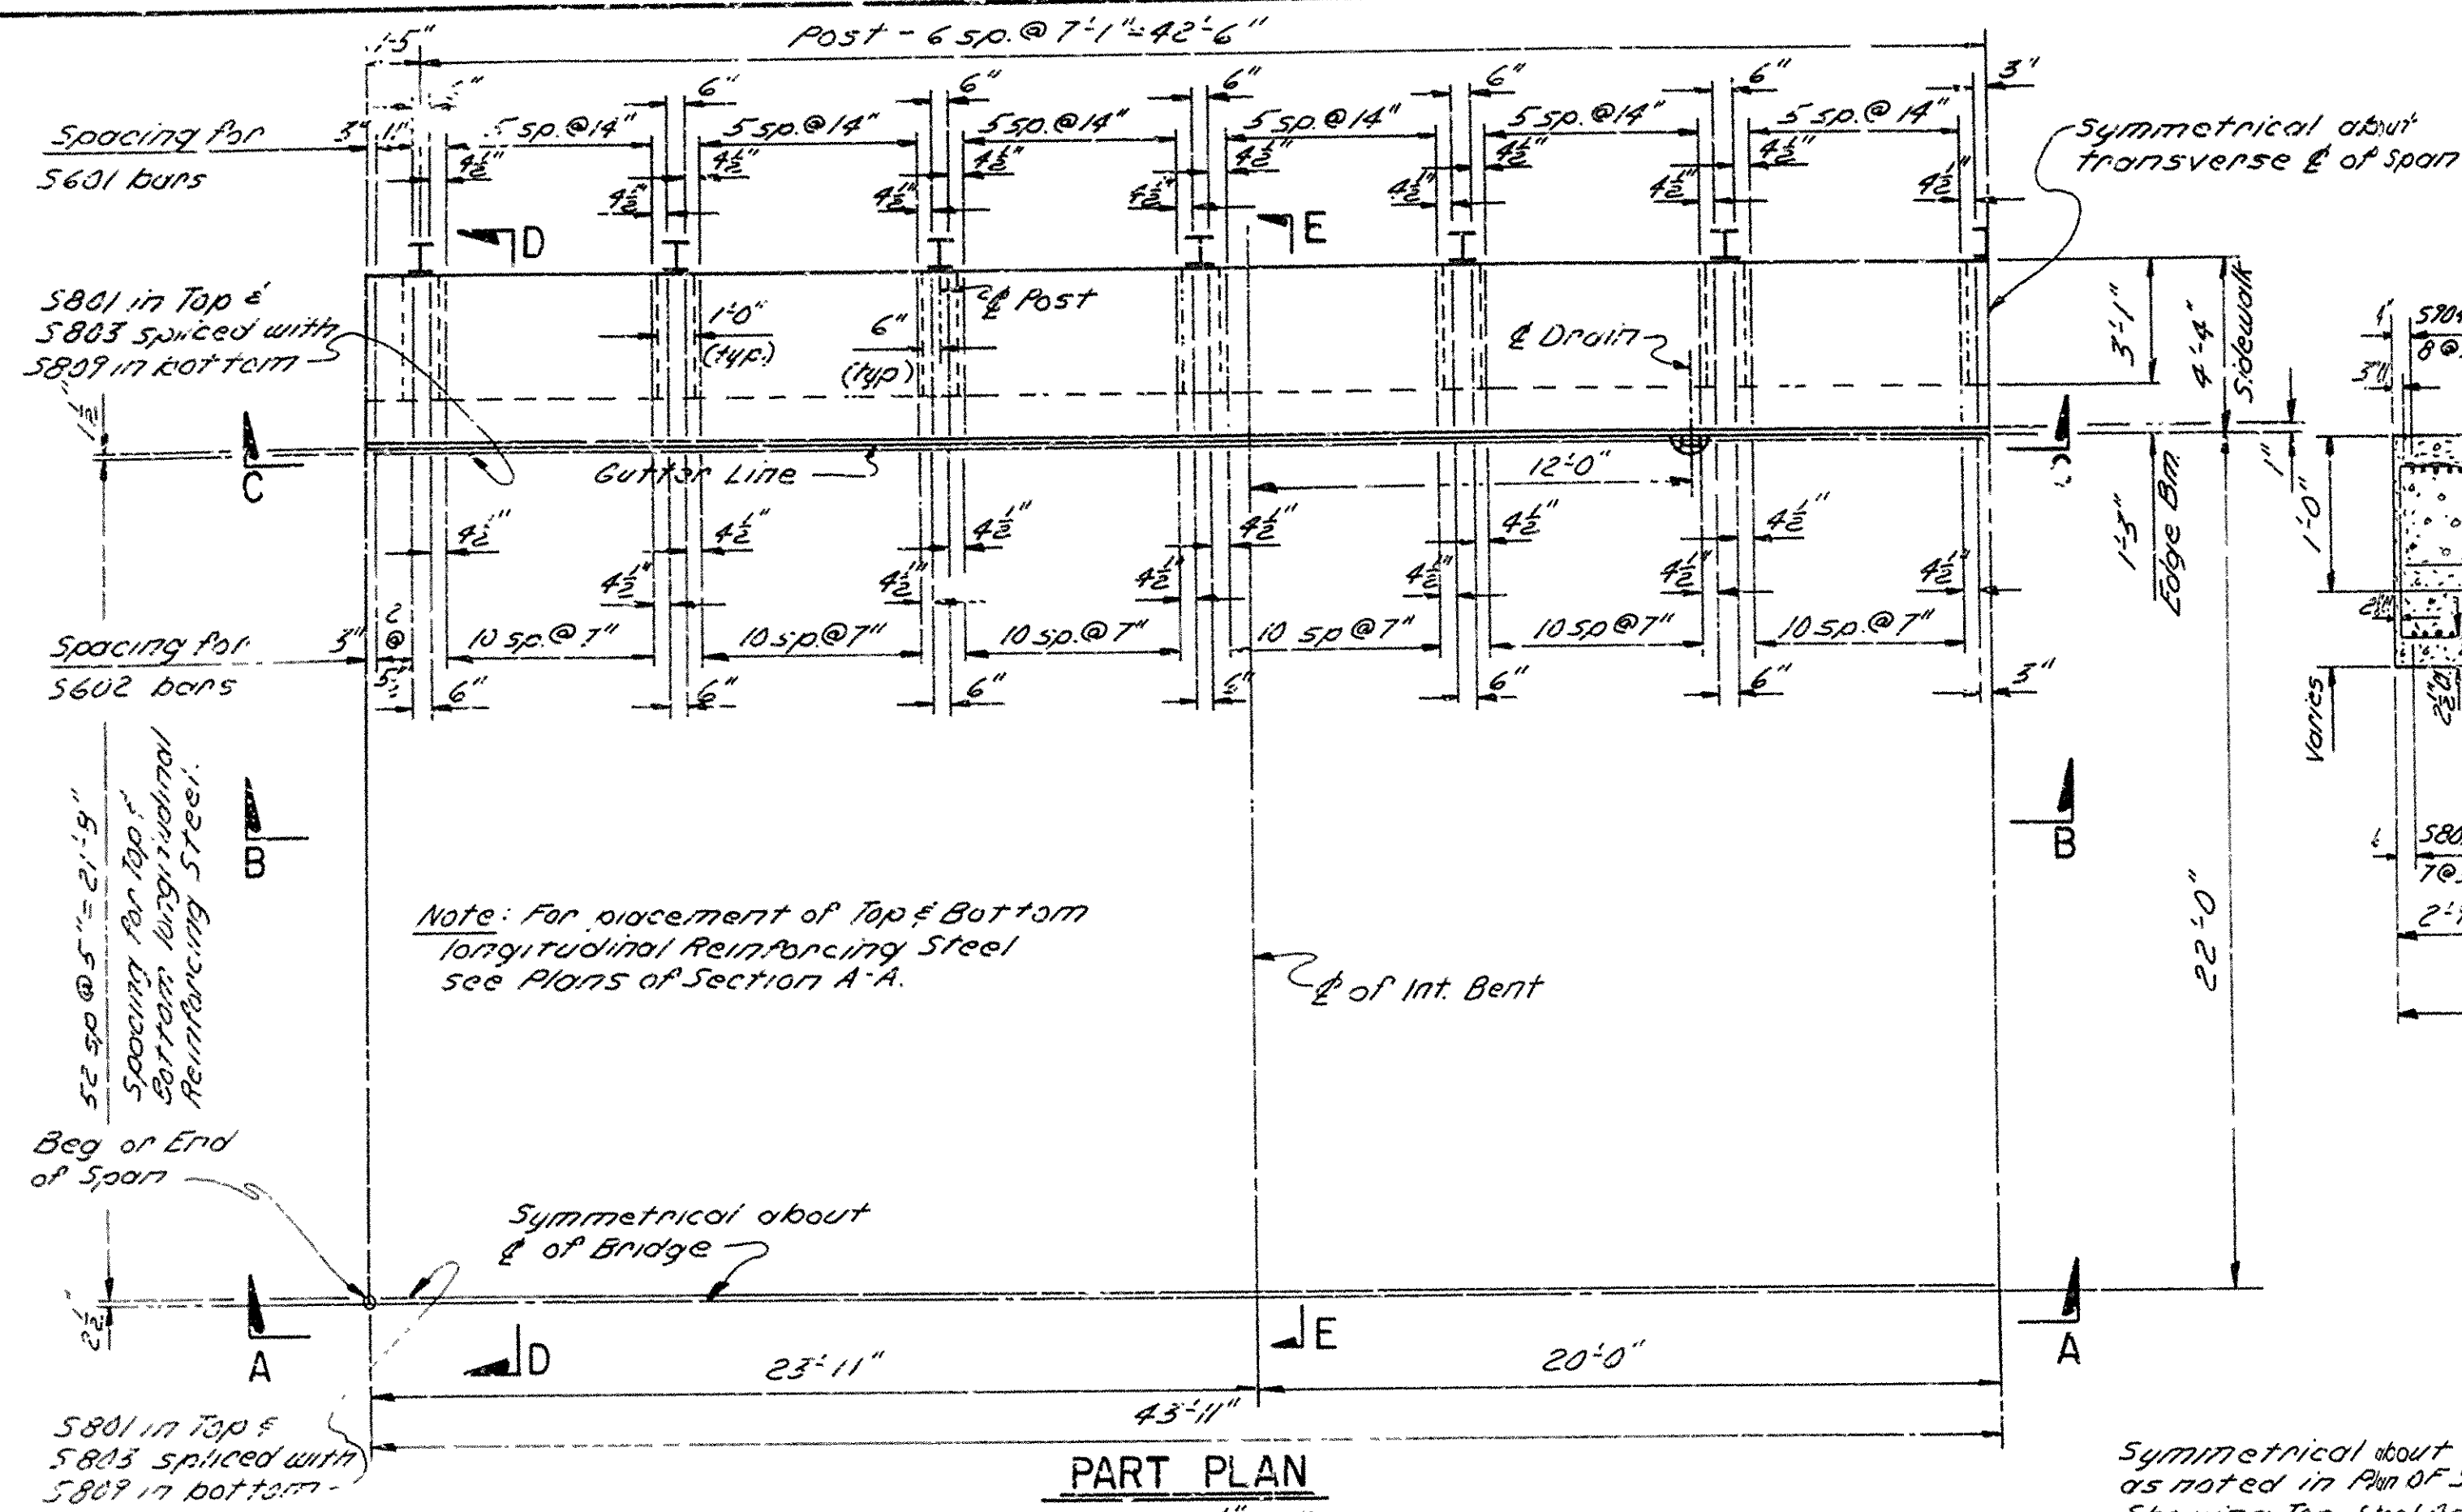 Post - 6 sp. @ 7'-1" = 42'-6"
1'-5"
6"
6"
6"
6"
6"
3"
Spacing for
S601 bars
3"
5 sp. @ 14"
5 sp. @ 14"
5 sp. @ 14"
5 sp. @ 14"
5 sp. @ 14"
5 sp. @ 14"
4½"
4½"
4½"
4½"
4½"
4½"
4½"
4½"
4½"
4½"
4½"
4½"
Symmetrical about
transverse ℄ of Span
D
E
S801 in Top &
S803 spliced with
S809 in bottom
1'-0"
(typ.)
6"
(typ)
℄ Post
℄ Drain
3'-1"
4'-4"
Sidewalk
1½"
C
Gutter Line
12'-0"
1"
1'-3"
Edge Bm.
1'-0"
4½"
4½"
4½"
4½"
4½"
4½"
4½"
4½"
4½"
4½"
4½"
4½"
Spacing for
S602 bars
3"
2
@
10 sp. @ 7"
10 sp. @ 7"
10 sp. @ 7"
10 sp @ 7"
10 sp @ 7"
10 sp. @ 7"
6"
6"
6"
6"
6"
6"
3"
Varies
52 sp @ 5" = 21'-8"
Spacing for Top &
Bottom longitudinal
Reinforcing Steel.
B
B
22'-0"
7@
Note: For placement of Top & Bottom
longitudinal Reinforcing Steel
see Plans of Section A-A.
℄ of Int. Bent
Beg or End
of Span
Symmetrical about
℄ of Bridge
2½"
A
D
E
A
23'-11"
20'-0"
43'-11"
S801 in Top &
S803 spliced with
S809 in bottom
PART PLAN
Symmetrical about
as noted in Plan OF